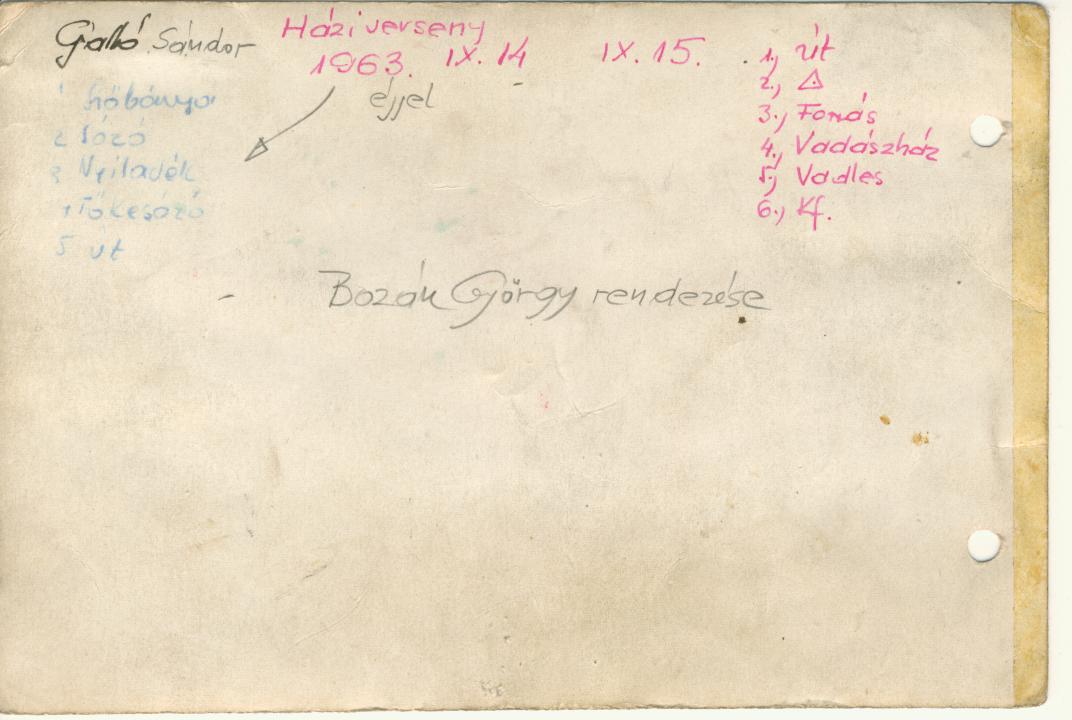 Galló Sándor
Házi verseny
1963. IX. 14 IX. 15.
éjjel
1 Kőbánya
2 Sózó
3 Nyiladék
5 út
1., út
2., △
3., Forrás
4., Vadászház
5., Vadles
6., Kf.
Bozán György rendezése